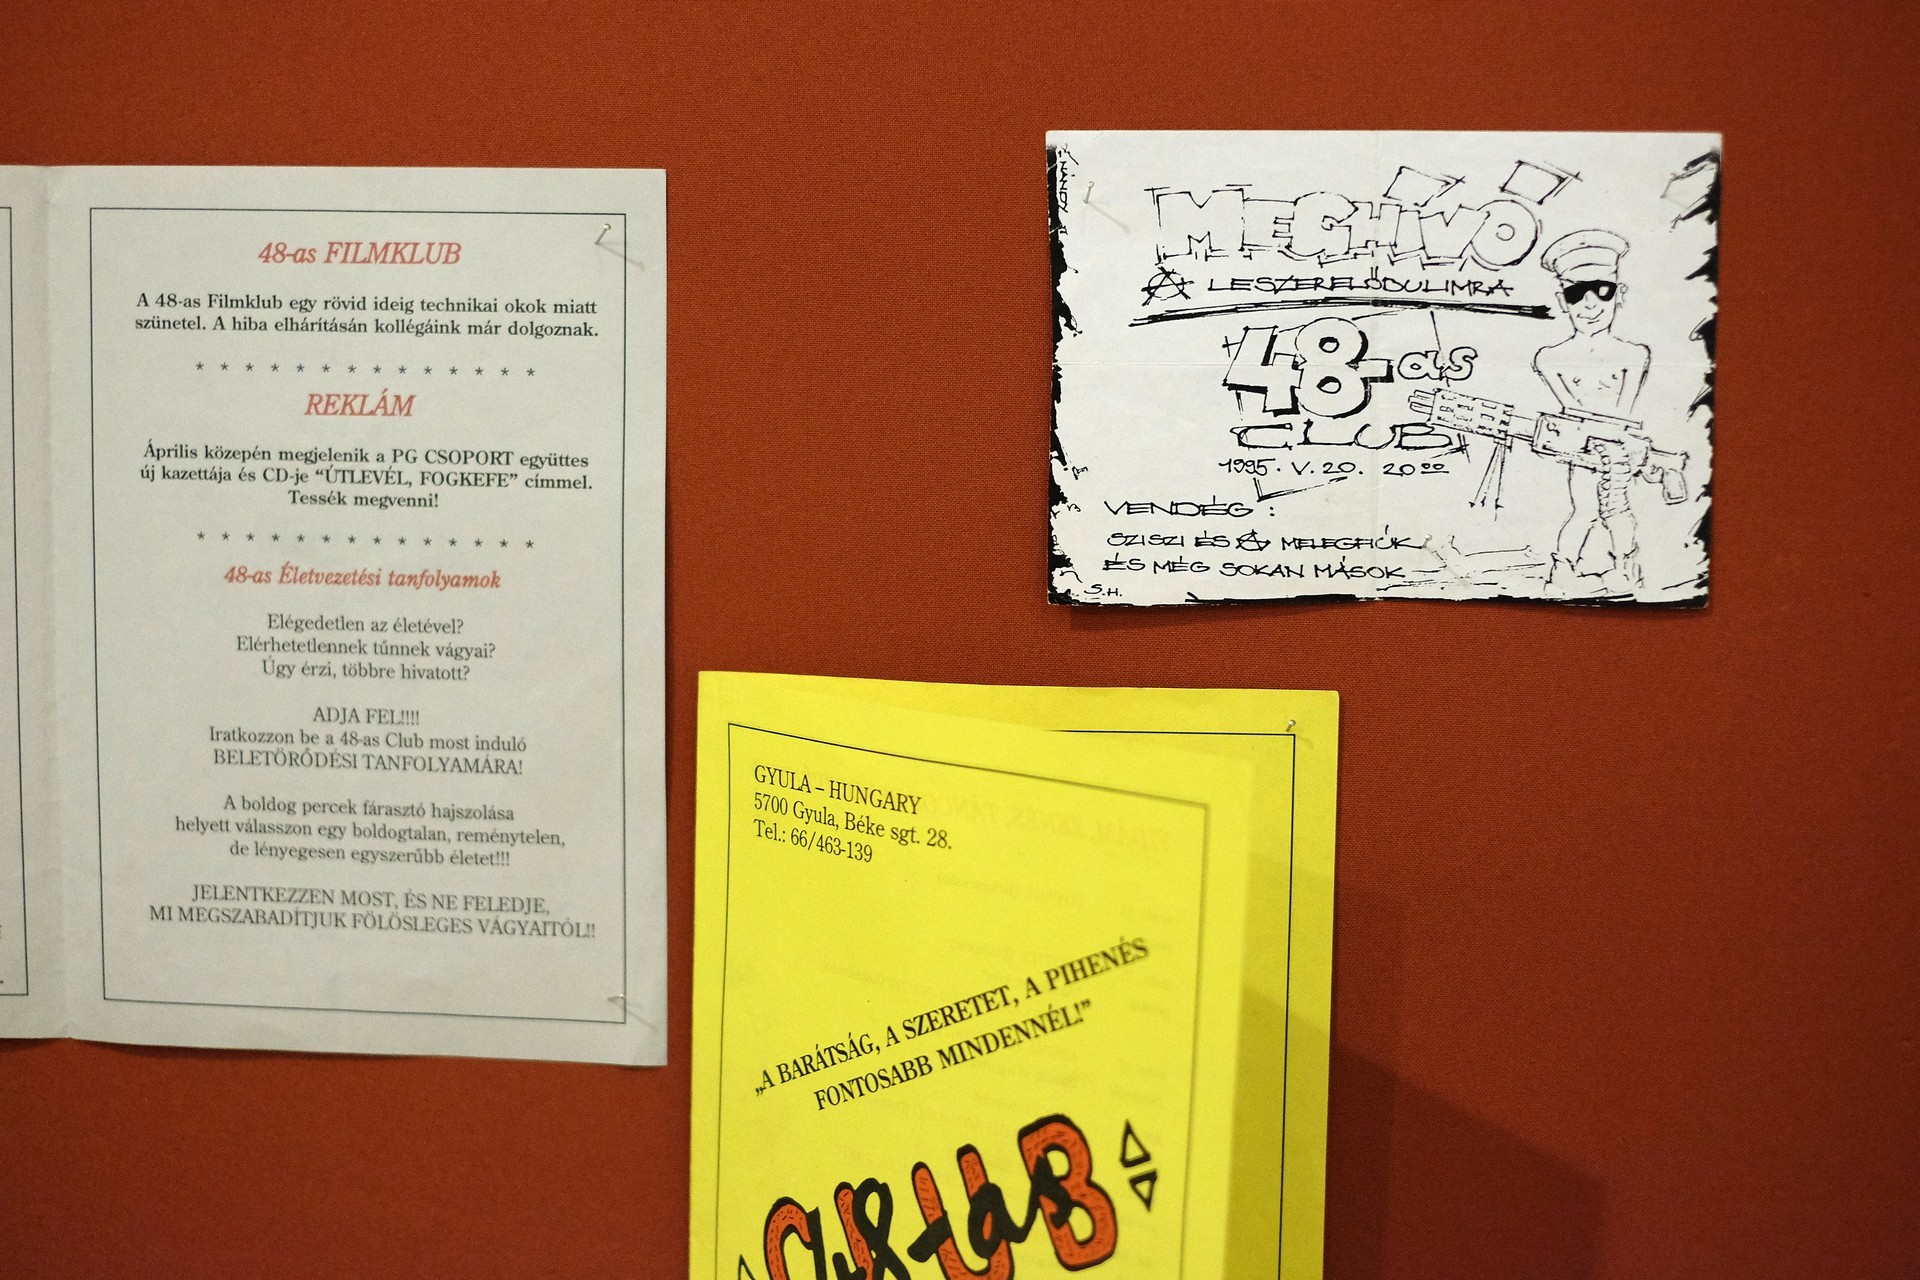 48-as FILMKLUB
A 48-as Filmklub egy rövid ideig technikai okok miatt
szünetel. A hiba elhárításán kollégáink már dolgoznak.
* * * * * * * * * * * * * *
REKLÁM
Április közepén megjelenik a PG CSOPORT együttes
új kazettája és CD-je “ÚTLEVÉL, FOGKEFE” címmel.
Tessék megvenni!
* * * * * * * * * * * * * *
48-as Életvezetési tanfolyamok
Elégedetlen az életével?
Elérhetetlennek tűnnek vágyai?
Úgy érzi, többre hivatott?
ADJA FEL!!!!
Iratkozzon be a 48-as Club most induló
BELETÖRŐDÉSI TANFOLYAMÁRA!
A boldog percek fárasztó hajszolása
helyett válasszon egy boldogtalan, reménytelen,
de lényegesen egyszerűbb életet!!!
JELENTKEZZEN MOST, ÉS NE FELEDJE,
MI MEGSZABADÍTJUK FÖLÖSLEGES VÁGYAITÓL!!
MEGHÍVÓ
A LESZERELŐBULIMRA
48-as
CLUB
1995. V. 20. 20⁰⁰
VENDÉG :
SZISZI ÉS A MELEGFIÚK
ÉS MÉG SOKAN MÁSOK
S.H.
GYULA – HUNGARY
5700 Gyula, Béke sgt. 28.
Tel.: 66/463-139
„A BARÁTSÁG, A SZERETET, A PIHENÉS
FONTOSABB MINDENNÉL!”
CLUB
48-as